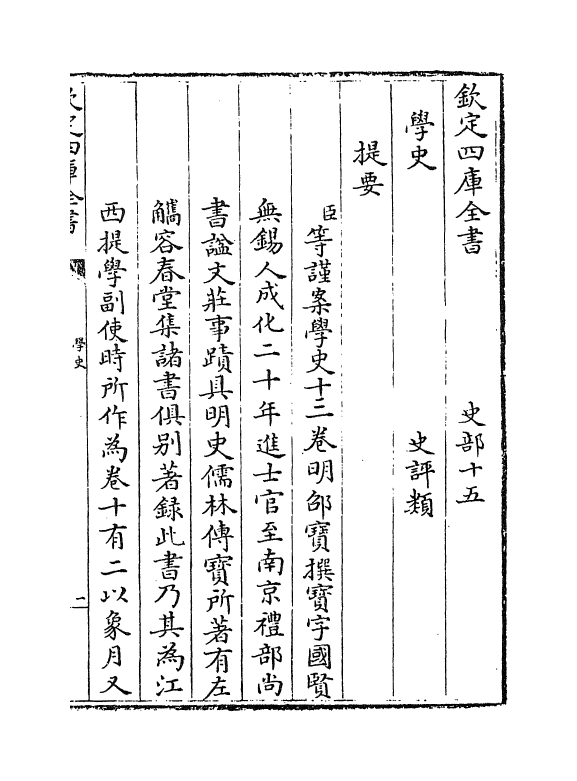 欽定四庫全書　史部十五
學史　史評類
提要
臣等謹案學史十三卷明邵寶撰寶字國賢
無錫人成化二十年進士官至南京禮部尚
書諡文莊事蹟具明史儒林傳寶所著有左
觿容春堂集諸書俱别著録此書乃其為江
西提學副使時所作為卷十有二以象月又
欽定四庫全書　學史　二